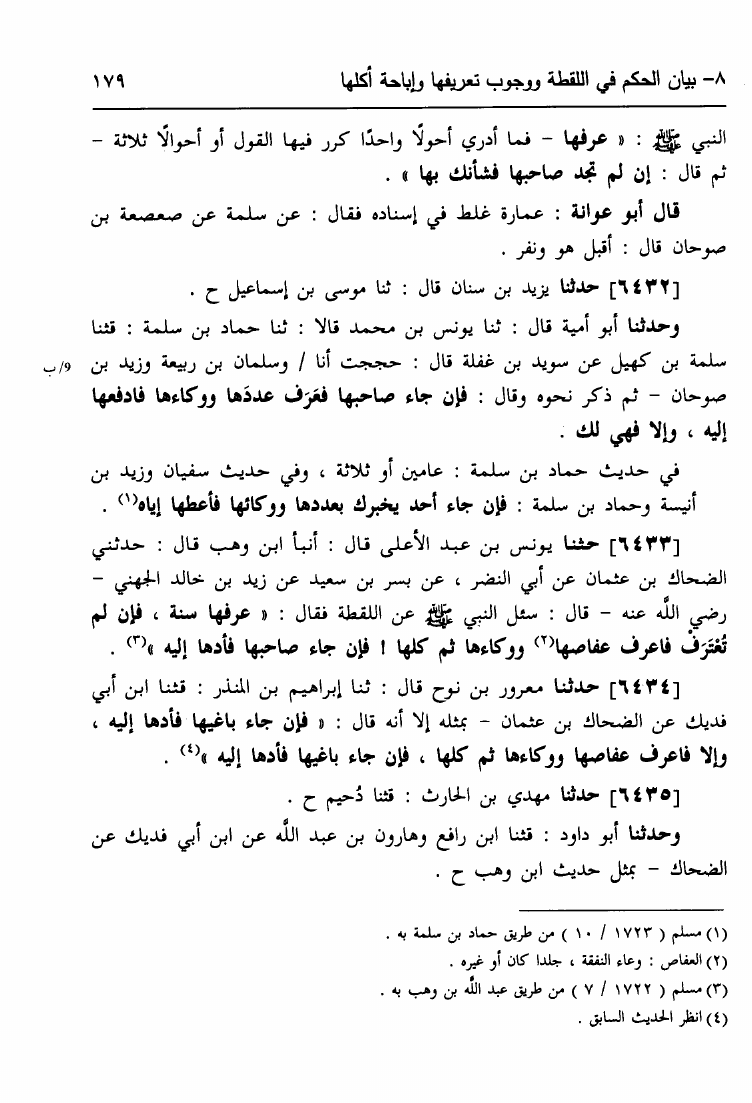 ٨- بيان الحكم في اللقطة ووجوب تعريفها وإباحة أكلها ١٧٩
النبي ﷺ : « عرفها - فما أدري أحولًا واحدًا كرر فيها القول أو أحوالًا ثلاثة -
ثم قال : إن لم تجد صاحبها فشأنك بها » .
قال أبو عوانة : عمارة غلط في إسناده فقال : عن سلمة عن صعصعة بن
صوحان قال : أقبل هو ونفر .
[٦٤٣٢] حدثنا يزيد بن سنان قال : ثنا موسى بن إسماعيل ح .
وحدثنا أبو أمية قال : ثنا يونس بن محمد قالا : ثنا حماد بن سلمة : قثنا
سلمة بن كهيل عن سويد بن غفلة قال : حججت أنا / وسلمان بن ربيعة وزيد بن ٩/ب
صوحان - ثم ذكر نحوه وقال : فإن جاء صاحبها فعَرَف عددَها ووكاءها فادفعها
إليه ، وإلا فهي لك .
في حديث حماد بن سلمة : عامين أو ثلاثة ، وفي حديث سفيان وزيد بن
أنيسة وحماد بن سلمة : فإن جاء أحد يخبرك بعددها ووكائها فأعطها إياه(١) .
[٦٤٣٣] حثنا يونس بن عبد الأعلى قال : أنبأ ابن وهب قال : حدثني
الضحاك بن عثمان عن أبي النضر ، عن بسر بن سعيد عن زيد بن خالد الجهني -
رضي اللَّه عنه - قال : سئل النبي ﷺ عن اللقطة فقال : « عرفها سنة ، فإن لم
تُعْتَرَفْ فاعرف عفاصها(٢) ووكاءها ثم كلها ! فإن جاء صاحبها فأدها إليه »(٣) .
[٦٤٣٤] حدثنا معرور بن نوح قال : ثنا إبراهيم بن المنذر : قثنا ابن أبي
فديك عن الضحاك بن عثمان - بمثله إلا أنه قال : « فإن جاء باغيها فأدها إليه ،
وإلا فاعرف عفاصها ووكاءها ثم كلها ، فإن جاء باغيها فأدها إليه »(٤) .
[٦٤٣٥] حدثنا مهدي بن الحارث : قثنا دُحيم ح .
وحدثنا أبو داود : قثنا ابن رافع وهارون بن عبد اللَّه عن ابن أبي فديك عن
الضحاك - بمثل حديث ابن وهب ح .
(١) مسلم ( ١٧٢٣ / ١٠ ) من طريق حماد بن سلمة به .
(٢) العفاص : وعاء النفقة ، جلدا كان أو غيره .
(٣) مسلم ( ١٧٢٢ / ٧ ) من طريق عبد اللَّه بن وهب به .
(٤) انظر الحديث السابق .